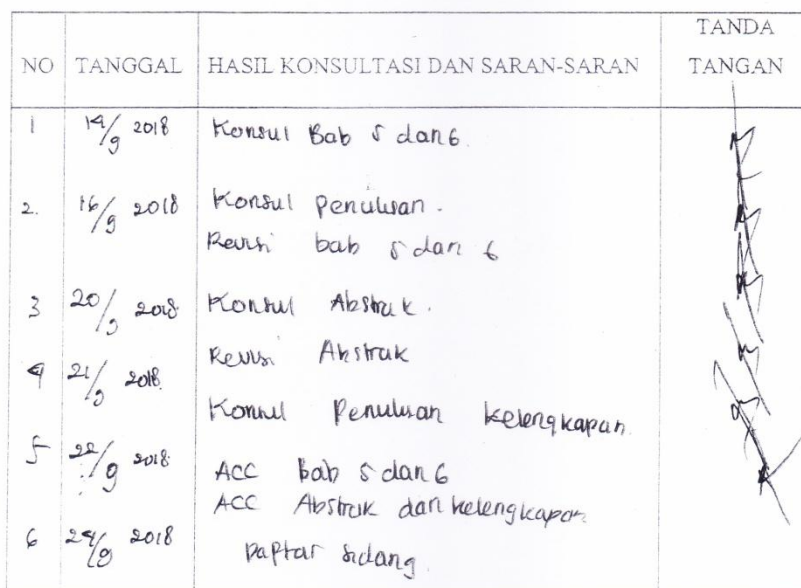 NO TANGGAL HASIL KONSULTASI DAN SARAN-SARAN TANDA TANGAN
1 14/9 2018 Konsul Bab 5 dan 6.
2. 16/9 2018 Konsul penulisan.
Revisi bab 5 dan 6
3 20/9 2018 Konsul Abstrak.
Revisi Abstrak
4 21/9 2018
Konsul Penulisan kelengkapan
5 22/9 2018
ACC Bab 5 dan 6
ACC Abstrak dan kelengkapan
6 24/9 2018 Daptar sidang.